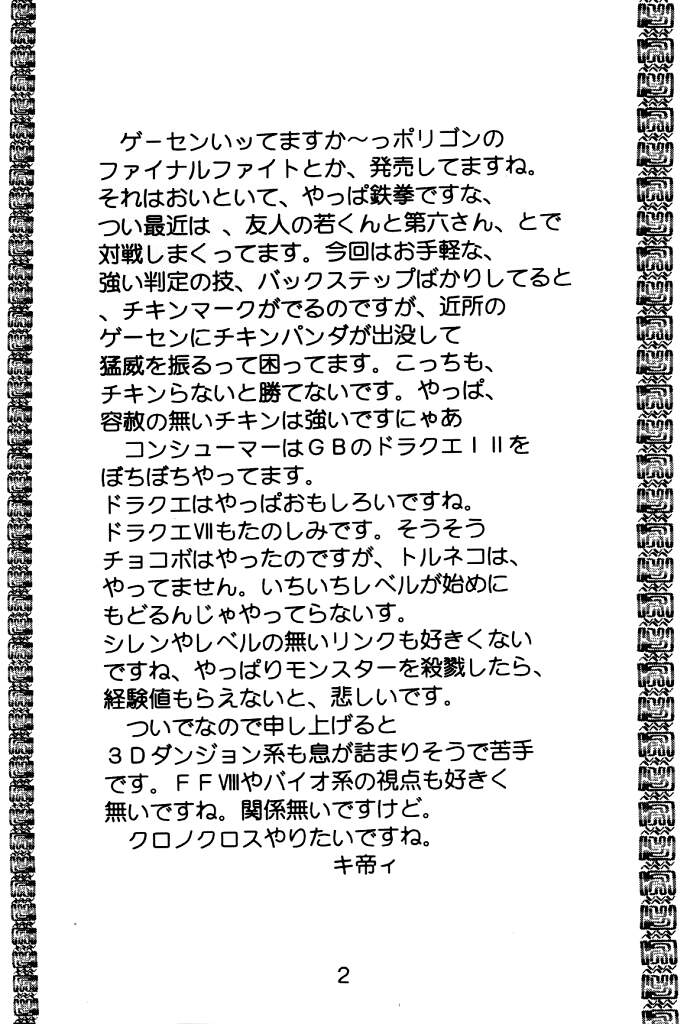 ゲーセンいッてますか～っポリゴンの
ファイナルファイトとか、発売してますね。
それはおいといて、やっぱ鉄拳ですな、
つい最近は、友人の若くんと第六さん、とで
対戦しまくってます。今回はお手軽な、
強い判定の技、バックステップばかりしてると
、チキンマークがでるのですが、近所の
ゲーセンにチキンパンダが出没して
猛威を振るって困ってます。こっちも、
チキンらないと勝てないです。やっぱ、
容赦の無いチキンは強いですにゃあ
コンシューマーはＧＢのドラクエＩＩＩを
ぼちぼちやってます。
ドラクエはやっぱおもしろいですね。
ドラクエⅦもたのしみです。そうそう
チョコボはやったのですが、トルネコは、
やってません。いちいちレベルが始めに
もどるんじゃやってらないす。
シレンやレベルの無いリンクも好きくない
ですね、やっぱりモンスターを殺戮したら、
経験値もらえないと、悲しいです。
ついでなので申し上げると
３Ｄダンジョン系も息が詰まりそうで苦手
です。ＦＦⅧやバイオ系の視点も好きく
無いですね。関係無いですけど。
クロノクロスやりたいですね。
キ帝ィ
2